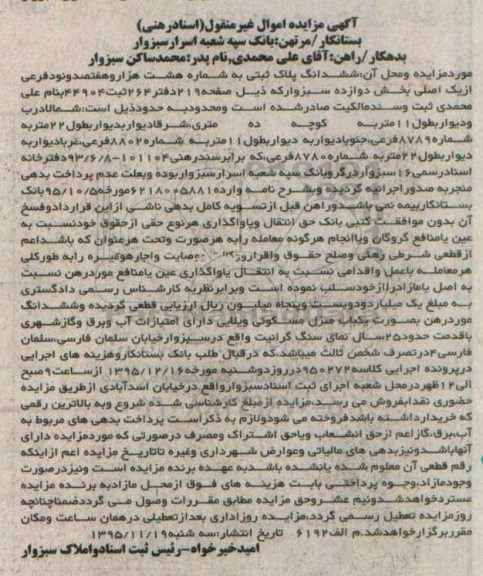 آگهی مزایده اموال غیرمنقول(اسنادرهنی)
بستانکار/مرتهن:بانک سپه شعبه اسرارسبزوار
بدهکار/راهن:آقای علی محمدی،نام پدر:محمدساکن سبزوار
موردمزایده ومحل آن:ششدانگ پلاک ثبتی به شماره هشت هزاروهفتصدونودفرعی
ازیک اصلی بخش دوازده سبزوارکه ذیل صفحه219دفتر264ثبت44904بنام علی
محمدی ثبت وسندمالکیت صادرشده است ومحدودبه حدودذیل است:شمالادرب
ودیواربطول11متربه کوچه ده متری،شرقادیواربدیواربطول22متربه
شماره8789فرعی،جنوبادیواربه دیواربطول11متربه شماره8802فرعی،غربادیواربه
دیواربطول22متربه شماره8780فرعی،که برابرسندرهنی101104-93/6/8دفترخانه
اسنادرسمی16سبزواردرگروبانک سپه شعبه اسرارسبزواربوده وبعلت عدم پرداخت بدهی
منجربه صدوراجرائیه گردیده وبشرح نامه وارده6218005881مورخه95/10/5بانک
بستانکاربیمه نمی باشدوراهن قبل ازتسویه کامل بدهی ناشی ازاین قراردادوفسخ
آن بدون موافقت کتبی بانک حق انتقال ویاواگذاری هرنوع حقی ازحقوق خودنسبت به
عین یامنافع گروگان ویاانجام هرگونه معامله رابه هرصورت وتحت هرعنوان که باشداعم
ازقطعی شرطی رهنی وصلح حقوق واقرارو وصایت واجاره وغیره رابه طورکلی
هرمعامله یاعمل واقدامی نسبت به انتقال یاواگذاری عین یامنافع موردرهن نسبت
به اصل یامازادرازخودسلب نموده است وبرابرنظریه کارشناس رسمی دادگستری
به مبلغ یک میلیاردودویست وپنجاه میلیون ریال ارزیابی قطعی گردیده وششدانگ
موردرهن بصورت یکباب منزل مسکونی ویلایی دارای امتیازات آب وبرق وگازشهری
باقدمت حدود25سال نمای سنگ گرانیت واقع درسبزوارخیابان سلمان فارسی،سلمان
فارسی4درتصرف شخص ثالث میباشدکه درقبال طلب بانک بستانکاروهزینه های اجرایی
درپرونده اجرایی کلاسه9500272درروزدوشنبه مورخه1395/12/16 ازساعت9صبح
الی12ظهردرمحل شعبه اجرای ثبت اسنادسبزوارواقع درخیابان اسدآبادی ازطریق مزایده
حضوری نقدابفروش می رسد،مزایده ازمبلغ کارشناسی شده شروع وبه بالاترین رقمی
که خریدارداشته باشدفروخته می شودولازم به ذکراست پرداخت بدهی های مربوط به
آب،برق،گازاعم ازحق انشعاب ویاحق اشتراک ومصرف درصورتی که موردمزایده دارای
آنهاباشدونیزبدهی های مالیاتی وعوارض شهرداری وغیره تاتاریخ مزایده اعم ازاینکه
رقم قطعی آن معلوم شده یانشده باشدبه عهده برنده مزایده است ونیزدرصورت
وجودمازاد،وجوه پرداختی بابت هزینه های فوق ازمحل مازادبه برنده مزایده
مستردخواهدشدونیم عشروحق مزایده مطابق مقررات وصول می گرددضمناچنانچه
روزمزایده تعطیل رسمی گردد،مزایده روزاداری بعدازتعطیلی درهمان ساعت ومکان
مقرربرگزارخواهدشد.م الف6192 تاریخ انتشار:سه شنبه1395/11/19
امیدخیرخواه-رئیس ثبت اسنادواملاک سبزوار